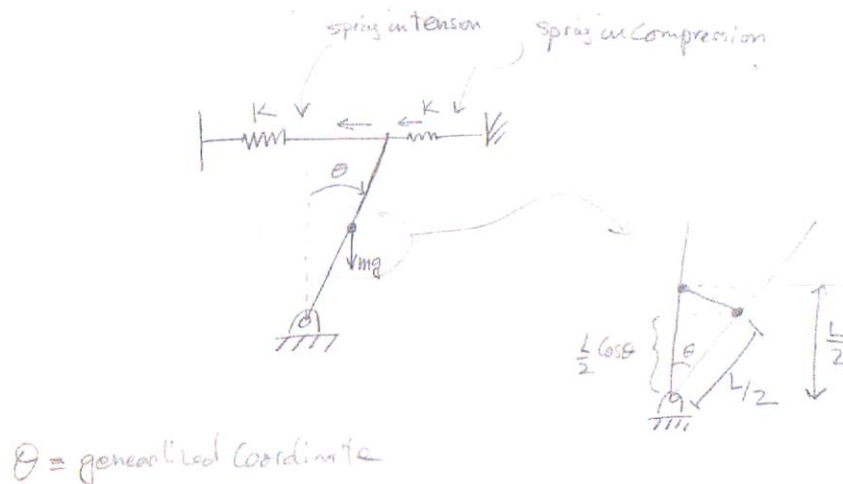 spring in tension
spring in compression
K
K
θ
mg
L/2 Cosθ
θ
L/2
L/2
θ = generalized Coordinate